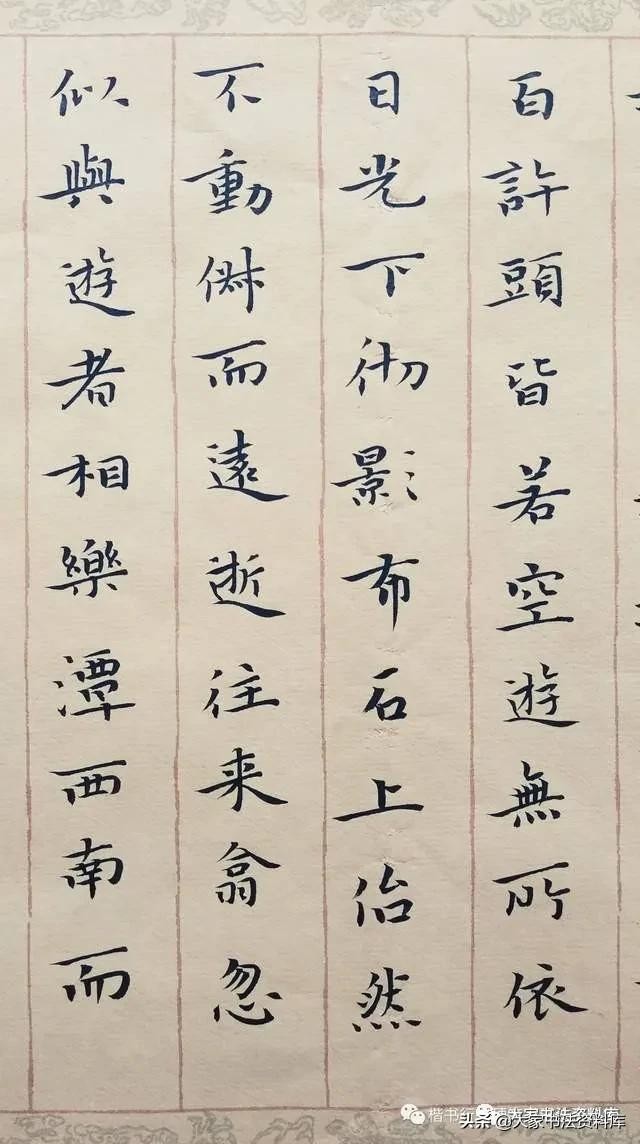 百許頭皆若空遊無所依
日光下彻影布石上佁然
不動俶而遠逝往来翕忽
似與遊者相樂潭西南而
头条@大家书法资料库